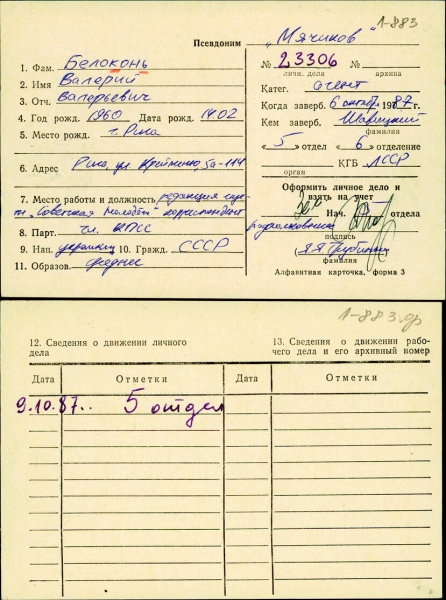 1-883
Псевдоним „Мячиков“
1. Фам. Белоконь № 23306 №
2. Имя Валерий личн. дела архива
3. Отч. Валерьевич Катег. агент
4. Год рожд. 1960 Дата рожд. 14.02 Когда заверб. 6 октября 1987 г.
5. Место рожд. г. Рига Кем заверб. Шавицкий
фамилия
„5“ отдел „6“ отделение
6. Адрес Рига, ул. 5а-114 КГБ ЛССР
орган
Оформить личное дело и
взять на учет
7. Место работы и должность редакция газе-
ты „Советская молодежь“ корреспондент
Нач. 5 отдела
8. Парт. чл. КПСС подполковник
подпись
9. Нац. украинец 10. Гражд. СССР
11. Образов. среднее фамилия
Алфавитная карточка, форма 3
1-883.др
12. Сведения о движении личного
дела
13. Сведения о движении рабо-
чего дела и его архивный номер
Дата Отметки Дата Отметки
9.10.87.. 5 отдел